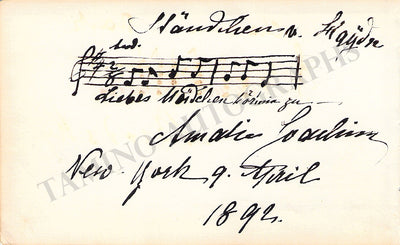 Ständchen v. Haydn
And.
Liebes Mädchen hör mir zu
Amalie Joachim
New-York 9. April
1892.
TAMINO AUTOGRAPHS